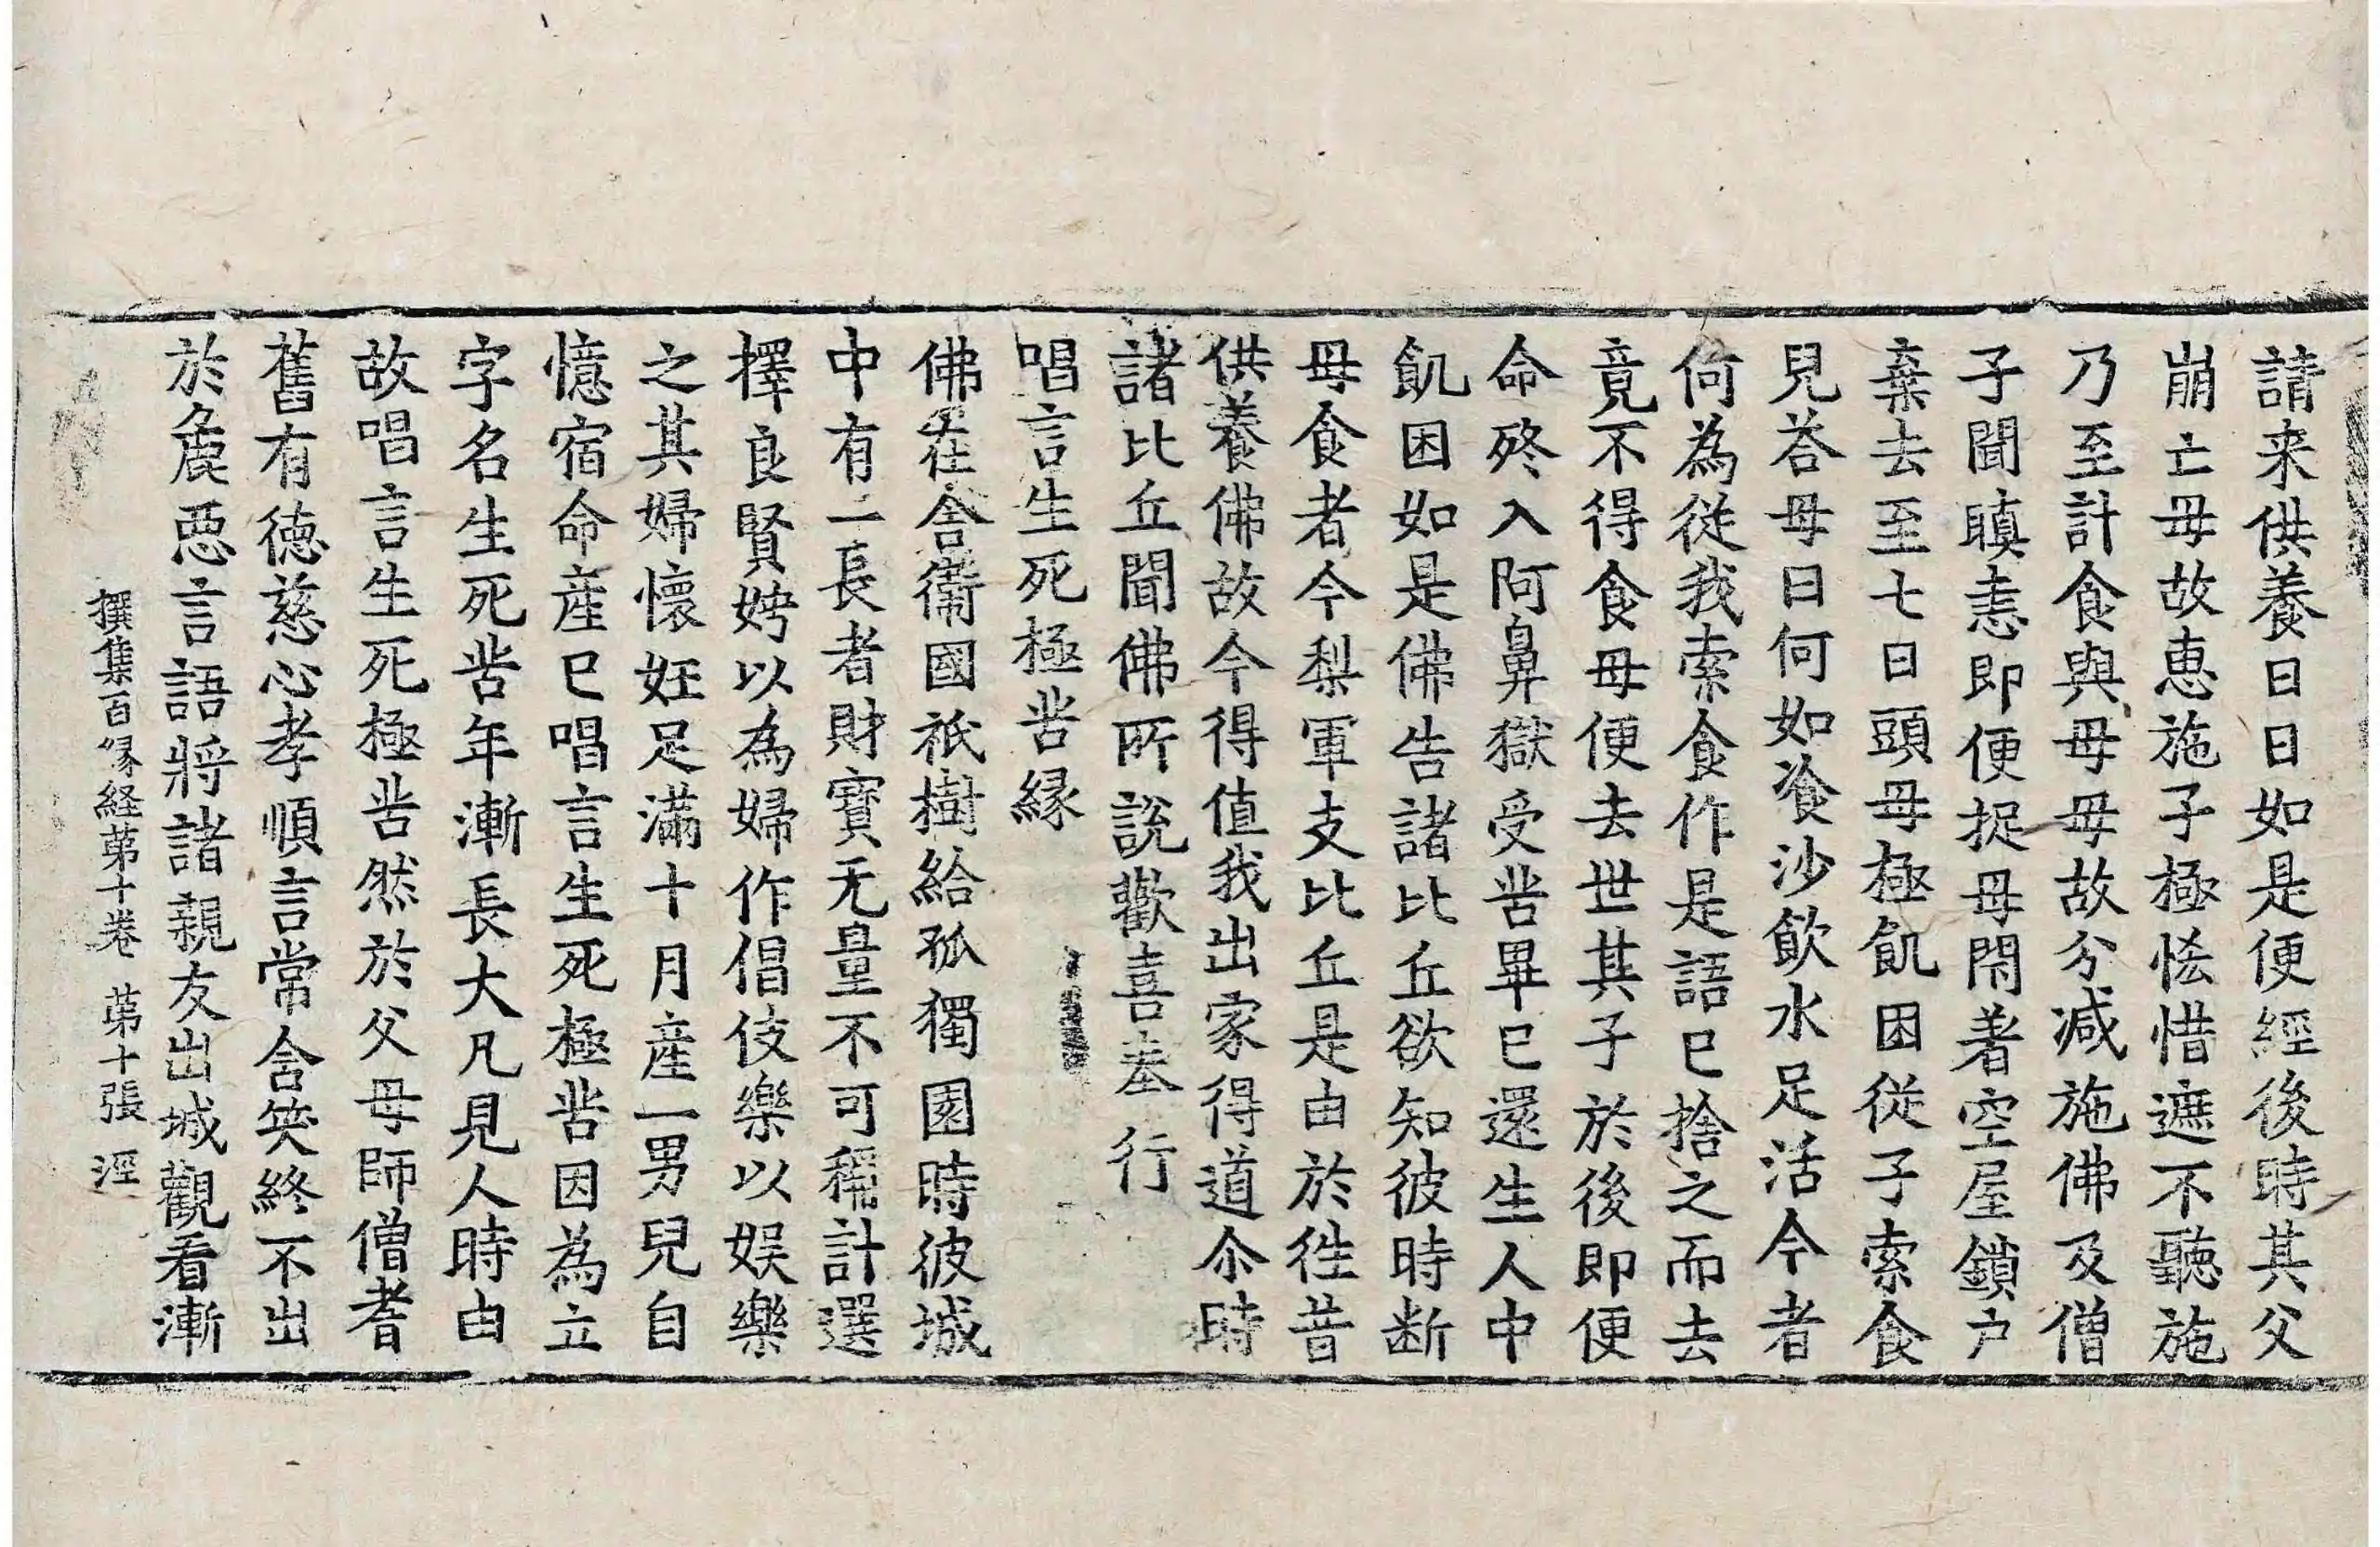 請来供養日日如是便經後時其父
崩亡母故惠施子極恡惜遮不聽施
乃至計食與母母故分減施佛及僧
子聞瞋恚即便捉母閇著空屋鎖户
棄去至七日頭母極飢困從子索食
兒荅母曰何如飡沙飲水足活今者
何為從我索食作是語巳捨之而去
竟不得食母便去世其子於後即便
命終入阿鼻獄受苦畢巳還生人中
飢困如是佛告諸比丘欲知彼時断
母食者今梨軍支比丘是由於徃昔
供養佛故今得值我出家得道尒時
諸比丘聞佛所說歡喜奉行
唱言生死極苦縁
佛在舍衞國祇樹給孤獨園時彼城
中有一長者財寶无量不可稱計選
擇良賢娉以為婦作倡伎樂以娱樂
之其婦懷妊足滿十月産一男兒自
憶宿命産巳唱言生死極苦因為立
字名生死苦年漸長大凡見人時由
故唱言生死極苦然於父母師僧耆
舊有徳慈心孝順言常含笑終不出
於麁惡言語將諸親友出城觀看漸
撰集百縁経苐十卷 苐十張 涇